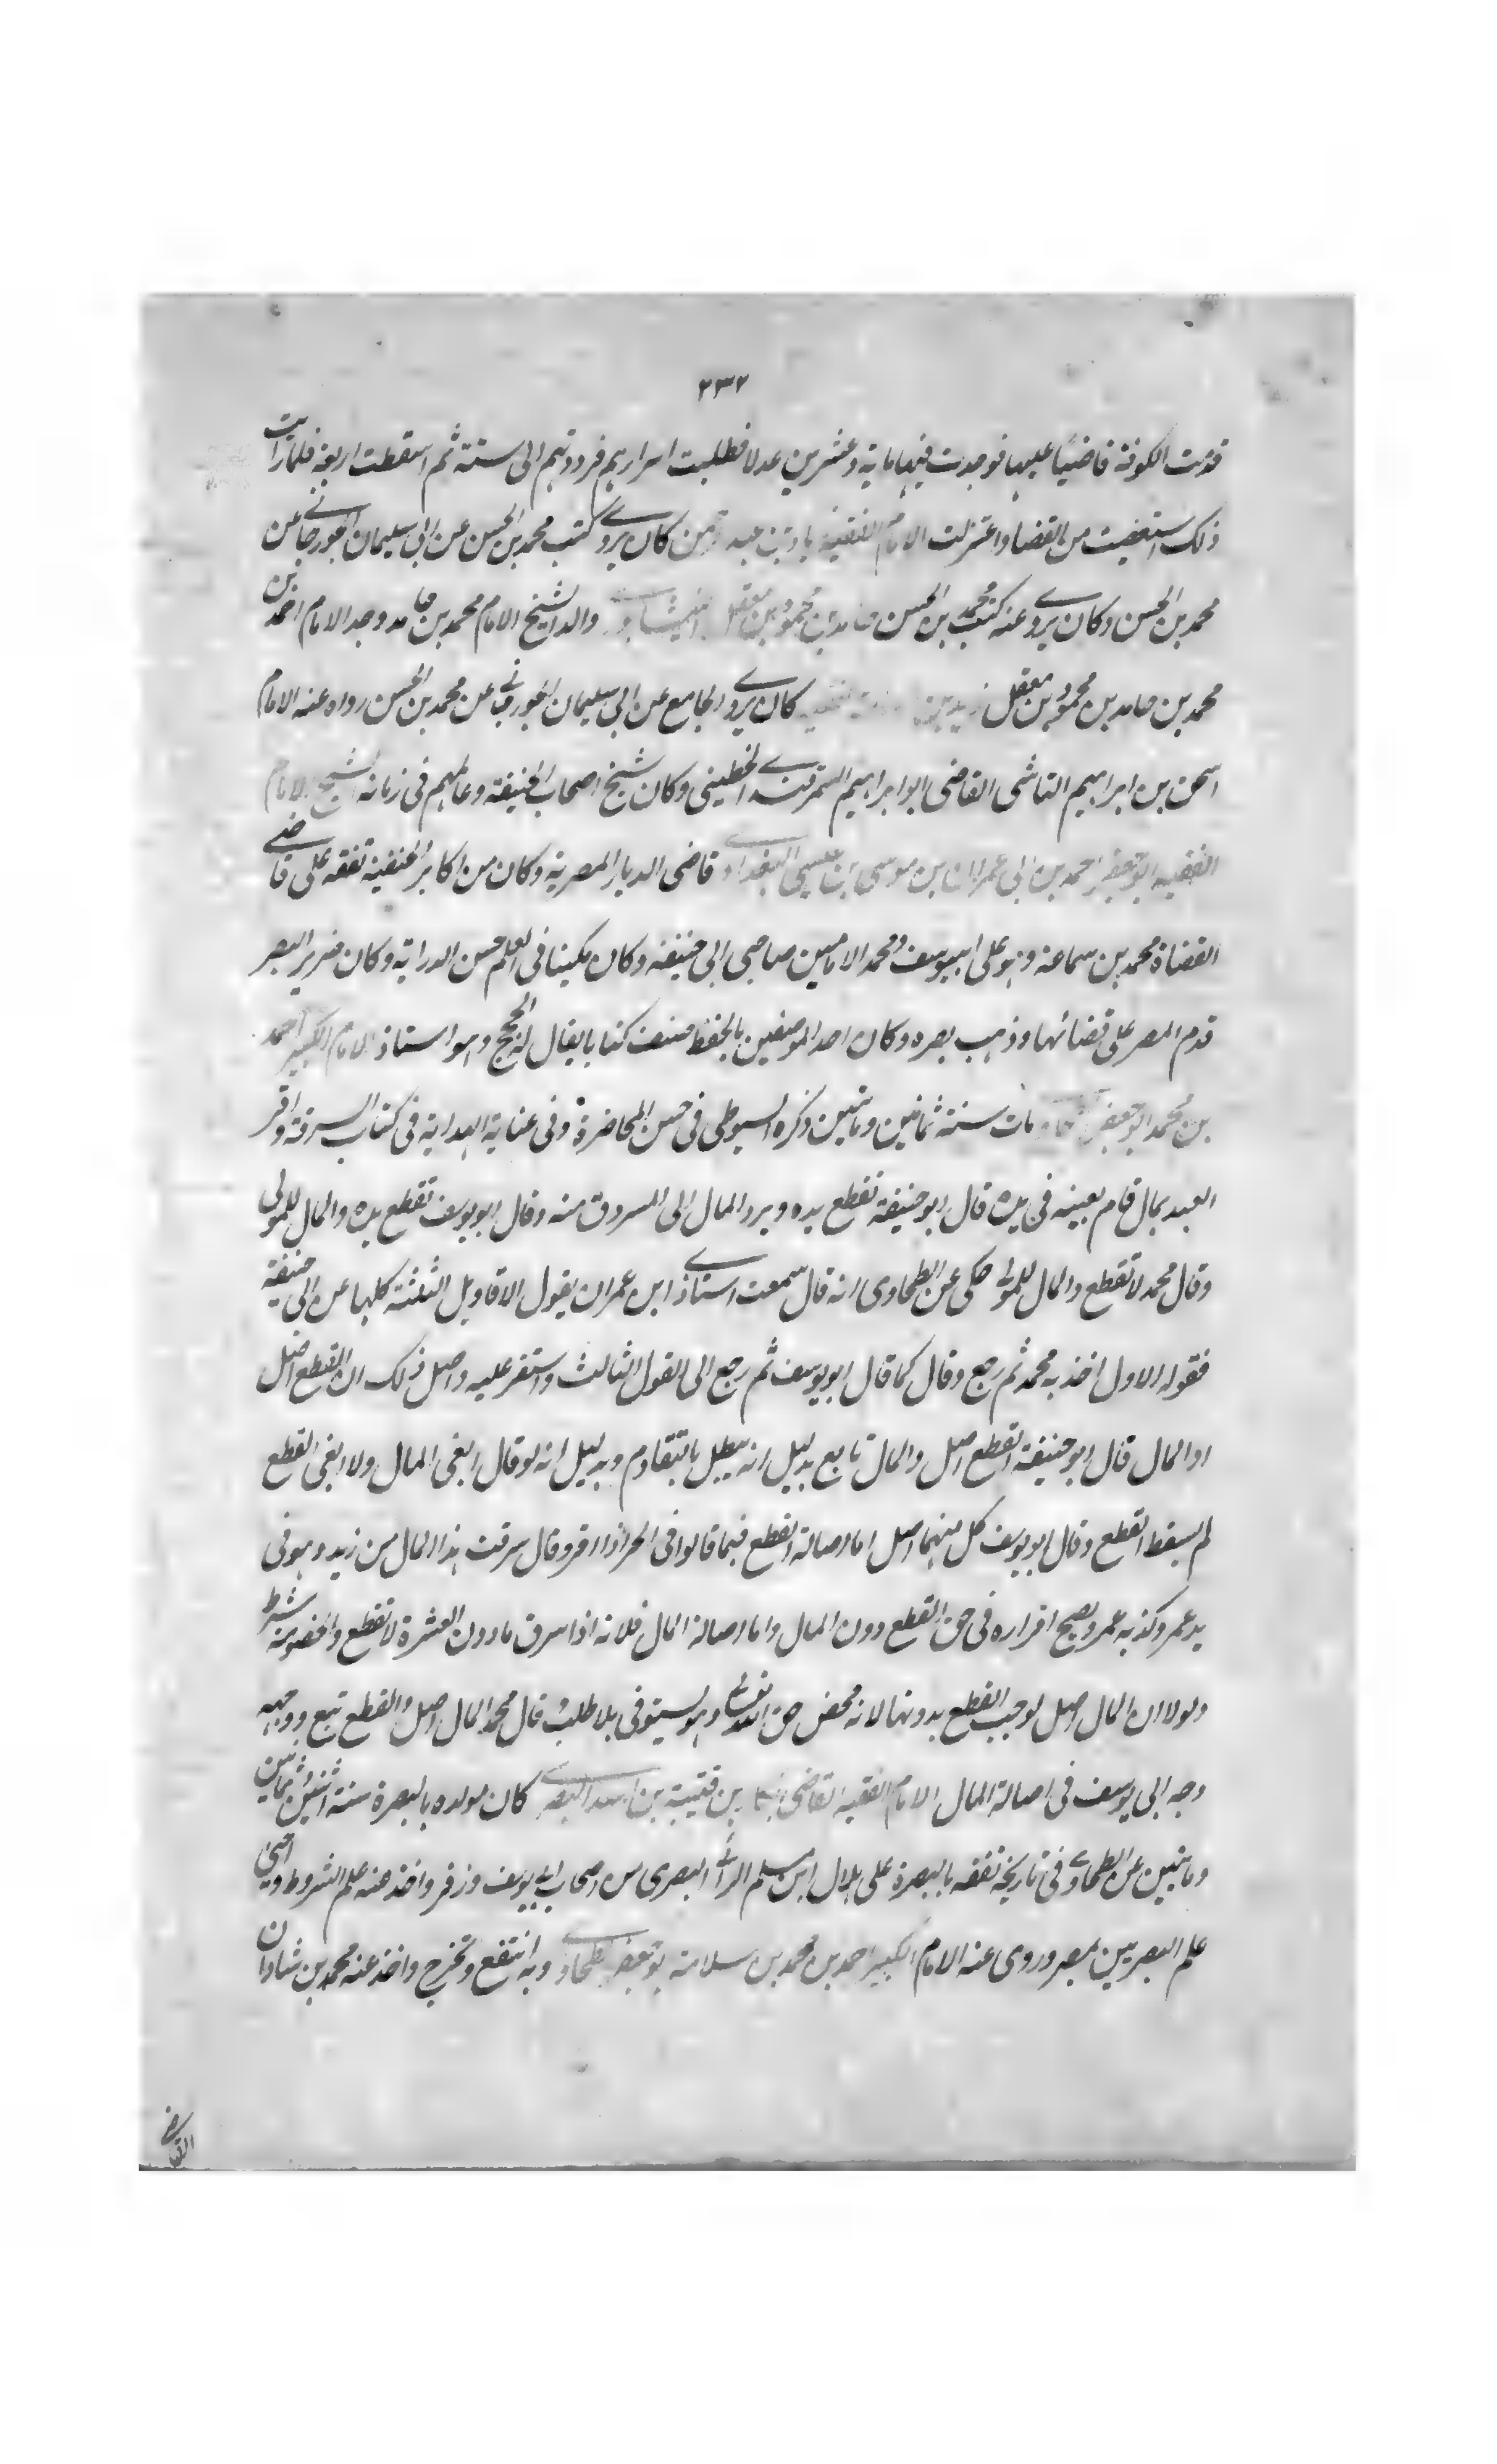 ٢٣٢
قدمت الكوفة قاضيا عليها فوجدت فيها ماية وعشرين عدلا فطلبت اسرارهم فرددتهم الى ستة ثم اسقطت اربعة فلما رايت
ذلك استعفيت من القضا واعتزلت الامام الفقيه كان يروى كتب محمد بن الحسن عن ابى سليمان الجورجانى عن
محمد بن الحسن وكان يروى عنه كتب محمد بن الحسن حامد بن محمود بن معقل والد الشيخ الامام محمد بن حامد وجد الامام احمد بن
محمد بن حامد بن محمود بن معقل كان يروى الجامع عن ابى سليمان الجورجانى عن محمد بن الحسن رواه عنه الامام
اسحق بن ابراهيم الشاشى القاضى ابو ابراهيم السمرقندى الخطيبى وكان شيخ اصحاب ابى حنيفة وعالمهم فى زمانه الشيخ الامام
الفقيه ابو جعفر احمد بن ابى عمران بن موسى بن عيسى البغدادى قاضى الديار المصرية وكان من اكابر الحنفية تفقه على قاضى
القضاة محمد بن سماعة وهو على ابى يوسف ومحمد الامامين صاحبى ابى حنيفة وكان مكينا فى العلم حسن الدراية وكان ضرير البصر
قدم المصر على قضائها وذهب بصره وكان احد الموصفين بالحفظ صنف كتابا يقال له الحجج وهو استاذ الامام الكبير احمد
بن محمد ابو جعفر مات سنة ثمانين وماتين ذكره السيوطى فى حسن المحاضرة وفى عناية الهداية فى كتاب السرقة واقر
العبد بمال قام بعينه فى يده قال ابو حنيفة تقطع يده ويرد المال الى المسروق منه وقال ابو يوسف تقطع يده والمال للمولى
وقال محمد لا تقطع والمال للمولى حكى عن الطحاوى انه قال سمعت استاذى ابن عمران يقول الاقاويل الثلثة كلها عن ابى حنيفة
فقوله الاول اخذ به محمد ثم رجع وقال كما قال ابو يوسف ثم رجع الى القول الثالث واستقر عليه واصل ذلك ان القطع اصل
او المال قال ابو حنيفة القطع اصل والمال تابع بدليل انه يبطل بالتقادم وبدليل انه لو قال ابغى المال ولا ابغى القطع
لم يسقط القطع وقال ابو يوسف كل منهما اصل اما اصالة القطع فبما قالوا فى الحر اذا اقر وقال سرقت هذا المال من زيد وهو فى
يد عمر وكذبه عمر ويصح اقراره فى حق القطع دون المال واما اصالة المال فلانه اذا سرق ما دون العشرة لا تقطع والخصومة شرط
ولولا ان المال اصل لوجب القطع بدونها لانه محض حق الله تعالى وهو يستوفى بلا طلب وقال محمد المال اصل والقطع تبع ووجهه
وجه ابى يوسف فى اصالة المال الامام الفقيه القاضى بن قتيبة بن اسد البصرى كان مولده بالبصرة سنة اثنين وثمانين
وماتين عن الطحاوى فى تاريخه تفقه بالبصرة على هلال ابن مسلم الرائى البصرى من اصحاب ابى يوسف وزفر واخذ عنه علم الشروط واحيى
علم البصريين بمصر وروى عنه الامام الكبير احمد بن محمد بن سلامة ابو جعفر الطحاوى وبه انتفع وتخرج واخذ عنه محمد بن شاذان
القاضى